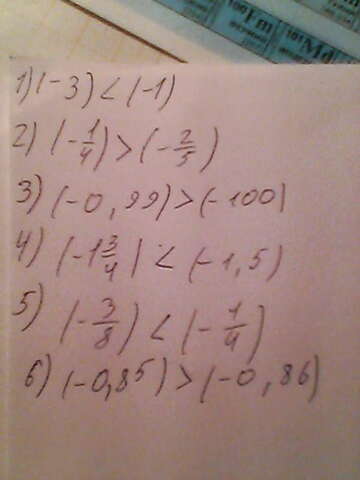 100 Fm
101 Md
1) (-3) < (-1)
2) (-1/4) > (-2/5)
3) (-0,99) > (-100)
4) (-1 3/4) < (-1,5)
5) (-3/8) < (-1/4)
6) (-0,85) > (-0,86)